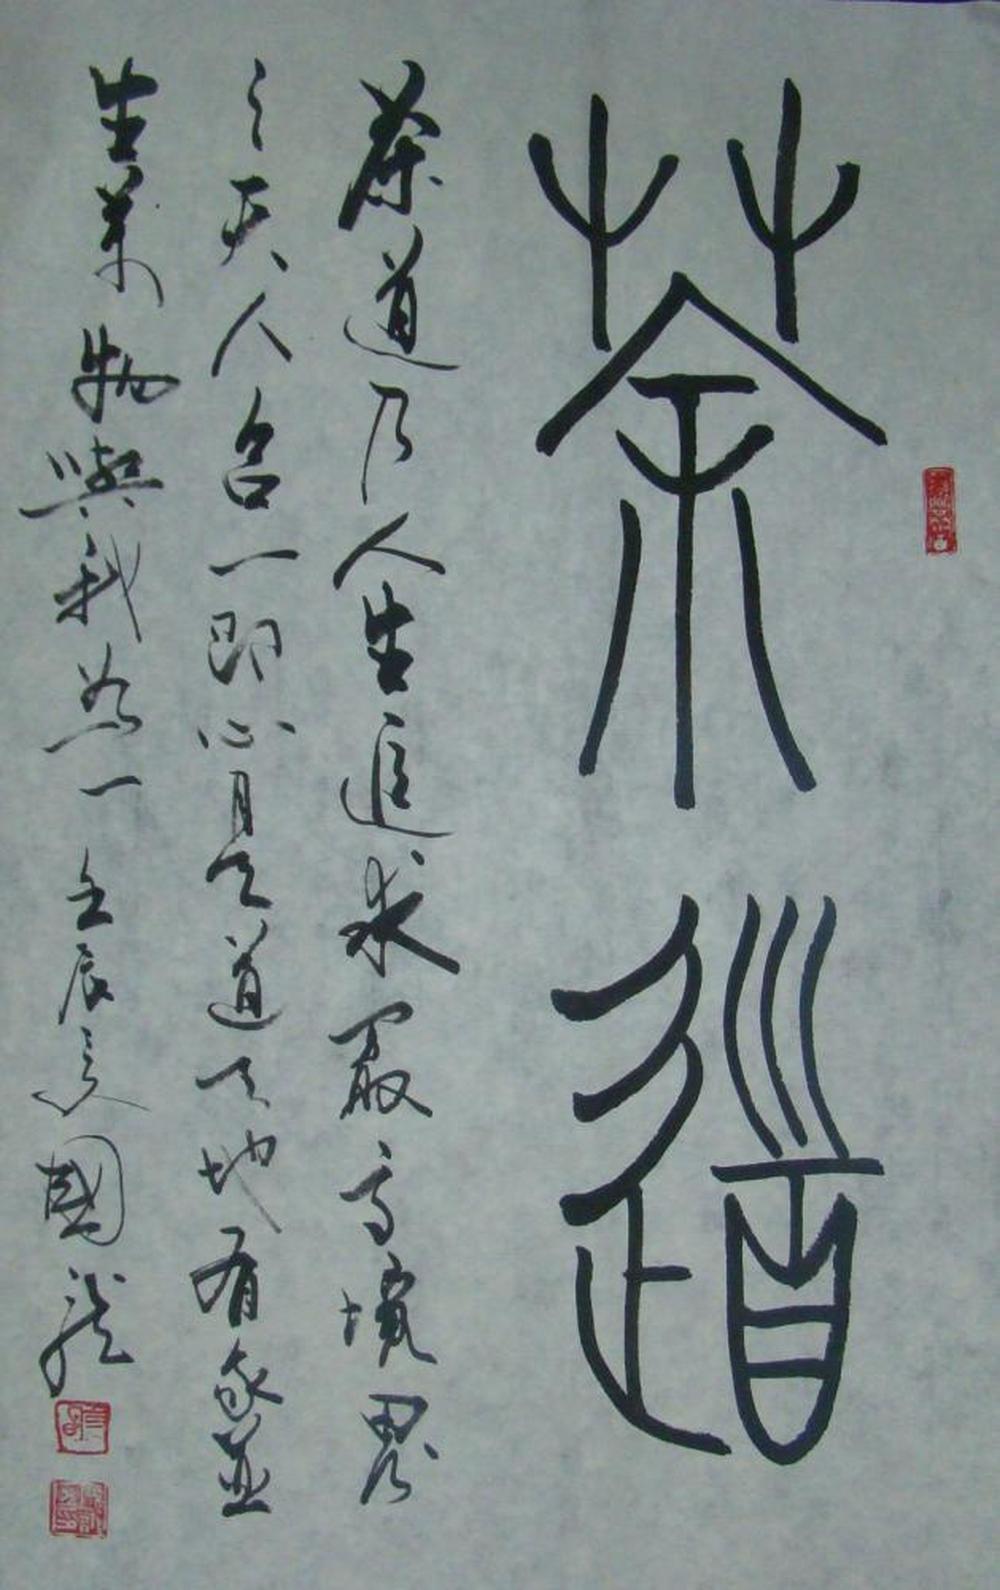 茶道
茶道乃人生追求最高境界
之天人合一即心是道天地有我並
生萬物與我為一壬辰夏國龍